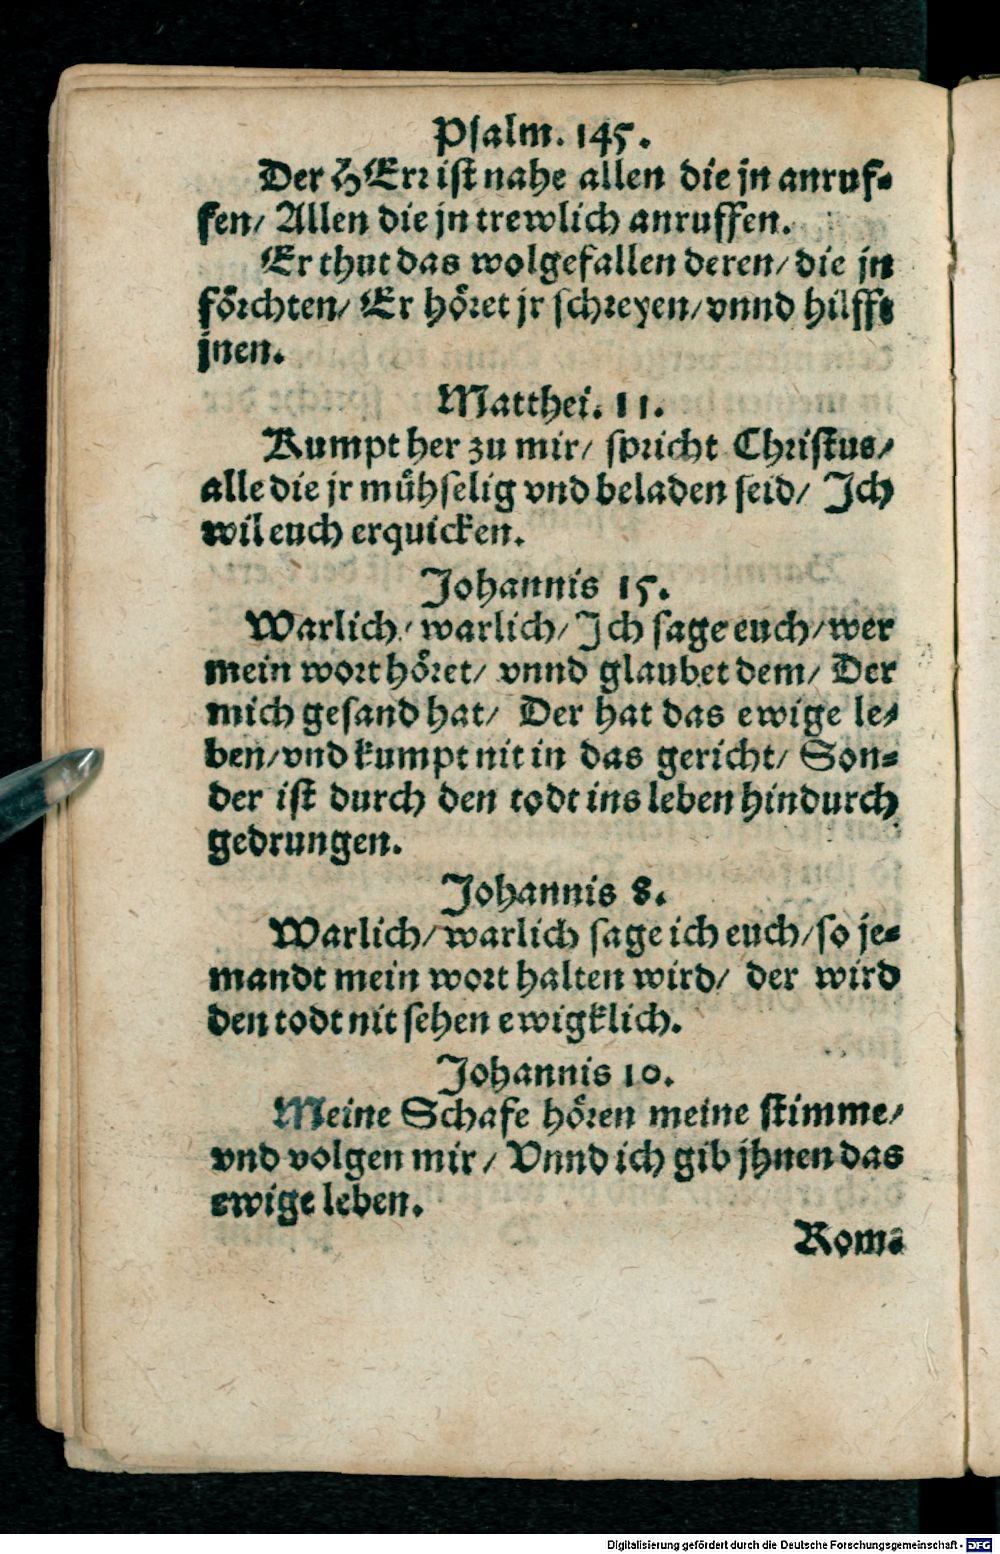 Psalm. 145.
Der HErr ist nahe allen die jn anruf-
fen/ Allen die jn trewlich anruffen.
Er thut das wolgefallen deren/ die jn
förchten/ Er höret jr schreyen/ vnnd hilfft
jnen.
Matthei. 11.
Kumpt her zu mir/ spricht Christus/
alle die jr mühselig vnd beladen seid/ Ich
wil euch erquicken.
Johannis 15.
Warlich/ warlich/ Ich sage euch/ wer
mein wort höret/ vnnd glaubet dem/ Der
mich gesand hat/ Der hat das ewige le-
ben/ vnd kumpt nit in das gericht/ Son-
der ist durch den todt ins leben hindurch
gedrungen.
Johannis 8.
Warlich/ warlich sage ich euch/ so je-
mandt mein wort halten wird/ der wird
den todt nit sehen ewigklich.
Johannis 10.
Meine Schafe hören meine stimme/
vnd volgen mir/ Vnnd ich gib jhnen das
ewige leben.
Rom.
Digitalisierung gefördert durch die Deutsche Forschungsgemeinschaft - DFG